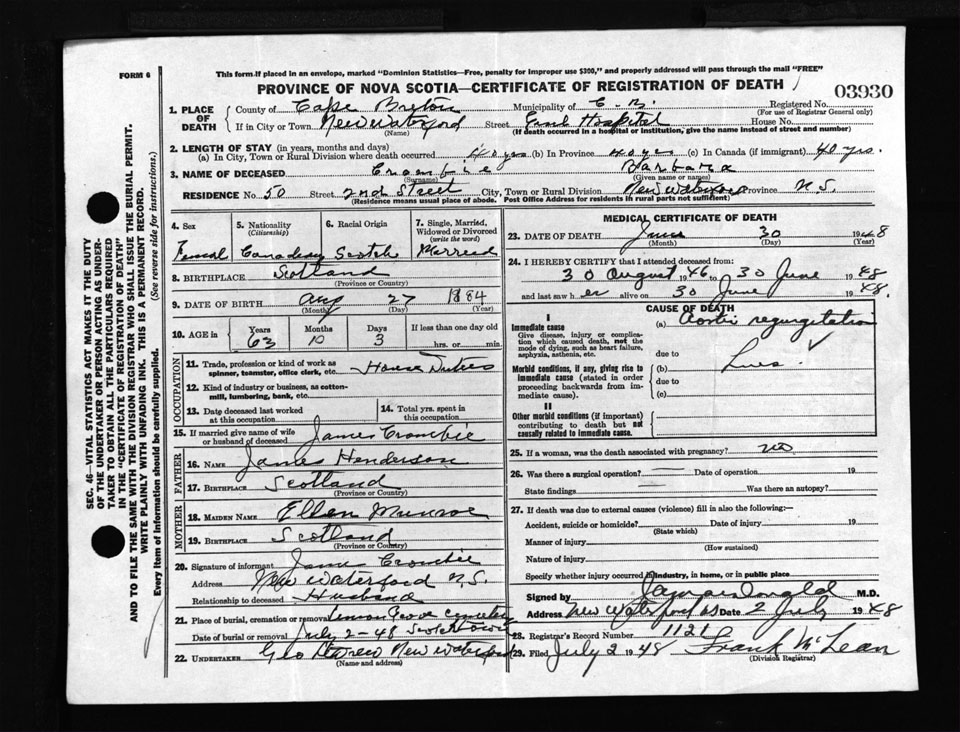 FORM 6
This form if placed in an envelope, marked "Dominion Statistics—Free, penalty for improper use $300," and properly addressed will pass through the mail "FREE"
PROVINCE OF NOVA SCOTIA—CERTIFICATE OF REGISTRATION OF DEATH
03930
1. PLACE OF DEATH
County of Cape Breton Municipality of C. B. Registered No.
(For use of Registrar General only)
If in City or Town New Waterford Street Hospital House No.
(Name) (If death occurred in a hospital or institution, give the name instead of street and number)
2. LENGTH OF STAY (in years, months and days)
(a) In City, Town or Rural Division where death occurred 40 yrs (b) In Province 40 yrs (c) In Canada (if immigrant) 40 yrs.
3. NAME OF DECEASED Crombie Barbara
(Surname) (Given name or names)
RESIDENCE No. 50 Street 2nd Street City, Town or Rural Division New Waterford Province N.S.
(Residence means usual place of abode. Post Office Address for residents in rural parts not sufficient)
4. Sex 5. Nationality (Citizenship) 6. Racial Origin 7. Single, Married, Widowed or Divorced (write the word)
Femal Canadian Scotch Married
8. BIRTHPLACE Scotland
(Province or Country)
9. DATE OF BIRTH Aug 27 1884
(Month) (Day) (Year)
10. AGE in Years Months Days If less than one day old
63 10 3 hrs. or min.
OCCUPATION
11. Trade, profession or kind of work as spinner, teamster, office clerk, etc. House Duties
12. Kind of industry or business, as cotton-mill, lumbering, bank, etc.
13. Date deceased last worked at this occupation
14. Total yrs. spent in this occupation
15. If married give name of wife or husband of deceased James Crombie
FATHER
16. NAME James Henderson
17. BIRTHPLACE Scotland
(Province or Country)
MOTHER
18. MAIDEN NAME Ellen Munroe
19. BIRTHPLACE Scotland
(Province or Country)
20. Signature of informant James Crombie
Address New Waterford N.S.
Relationship to deceased Husband
21. Place of burial, cremation or removal Cemetery
Date of burial or removal July 2-48 Scotchtown
22. UNDERTAKER Geo New Waterford
(Name and address)
MEDICAL CERTIFICATE OF DEATH
23. DATE OF DEATH June 30 1948
(Month) (Day) (Year)
24. I HEREBY CERTIFY that I attended deceased from
30 August 1946 to 30 June 1948
and last saw her alive on 30 June 1948.
CAUSE OF DEATH
I
Immediate cause
Give disease, injury or complication which caused death, not the mode of dying, such as heart failure, asphyxia, asthenia, etc.
(a) Aortic regurgitation
due to
Morbid conditions, if any, giving rise to immediate cause (stated in order proceeding backwards from immediate cause).
(b) Lues
due to
(c)
II
Other morbid conditions (if important) contributing to death but not causally related to immediate cause.
25. If a woman, was the death associated with pregnancy? no
26. Was there a surgical operation? Date of operation 19
State findings Was there an autopsy?
27. If death was due to external causes (violence) fill in also the following:—
Accident, suicide or homicide? Date of injury 19
(State which)
Manner of injury
(How sustained)
Nature of injury
Specify whether injury occurred in industry, in home, or in public place
Signed by M.D.
Address New Waterford NS Date 2 July 1948
28. Registrar's Record Number 1121
29. Filed July 2 1948 Frank McLean
(Division Registrar)
SEC. 46—VITAL STATISTICS ACT MAKES IT THE DUTY
OF THE UNDERTAKER OR PERSON ACTING AS UNDER-
TAKER TO OBTAIN ALL THE PARTICULARS REQUIRED
IN THE "CERTIFICATE OF REGISTRATION OF DEATH"
AND TO FILE THE SAME WITH THE DIVISION REGISTRAR WHO SHALL ISSUE THE BURIAL PERMIT.
WRITE PLAINLY WITH UNFADING INK. THIS IS A PERMANENT RECORD.
Every item of information should be carefully supplied. (See reverse side for instructions.)